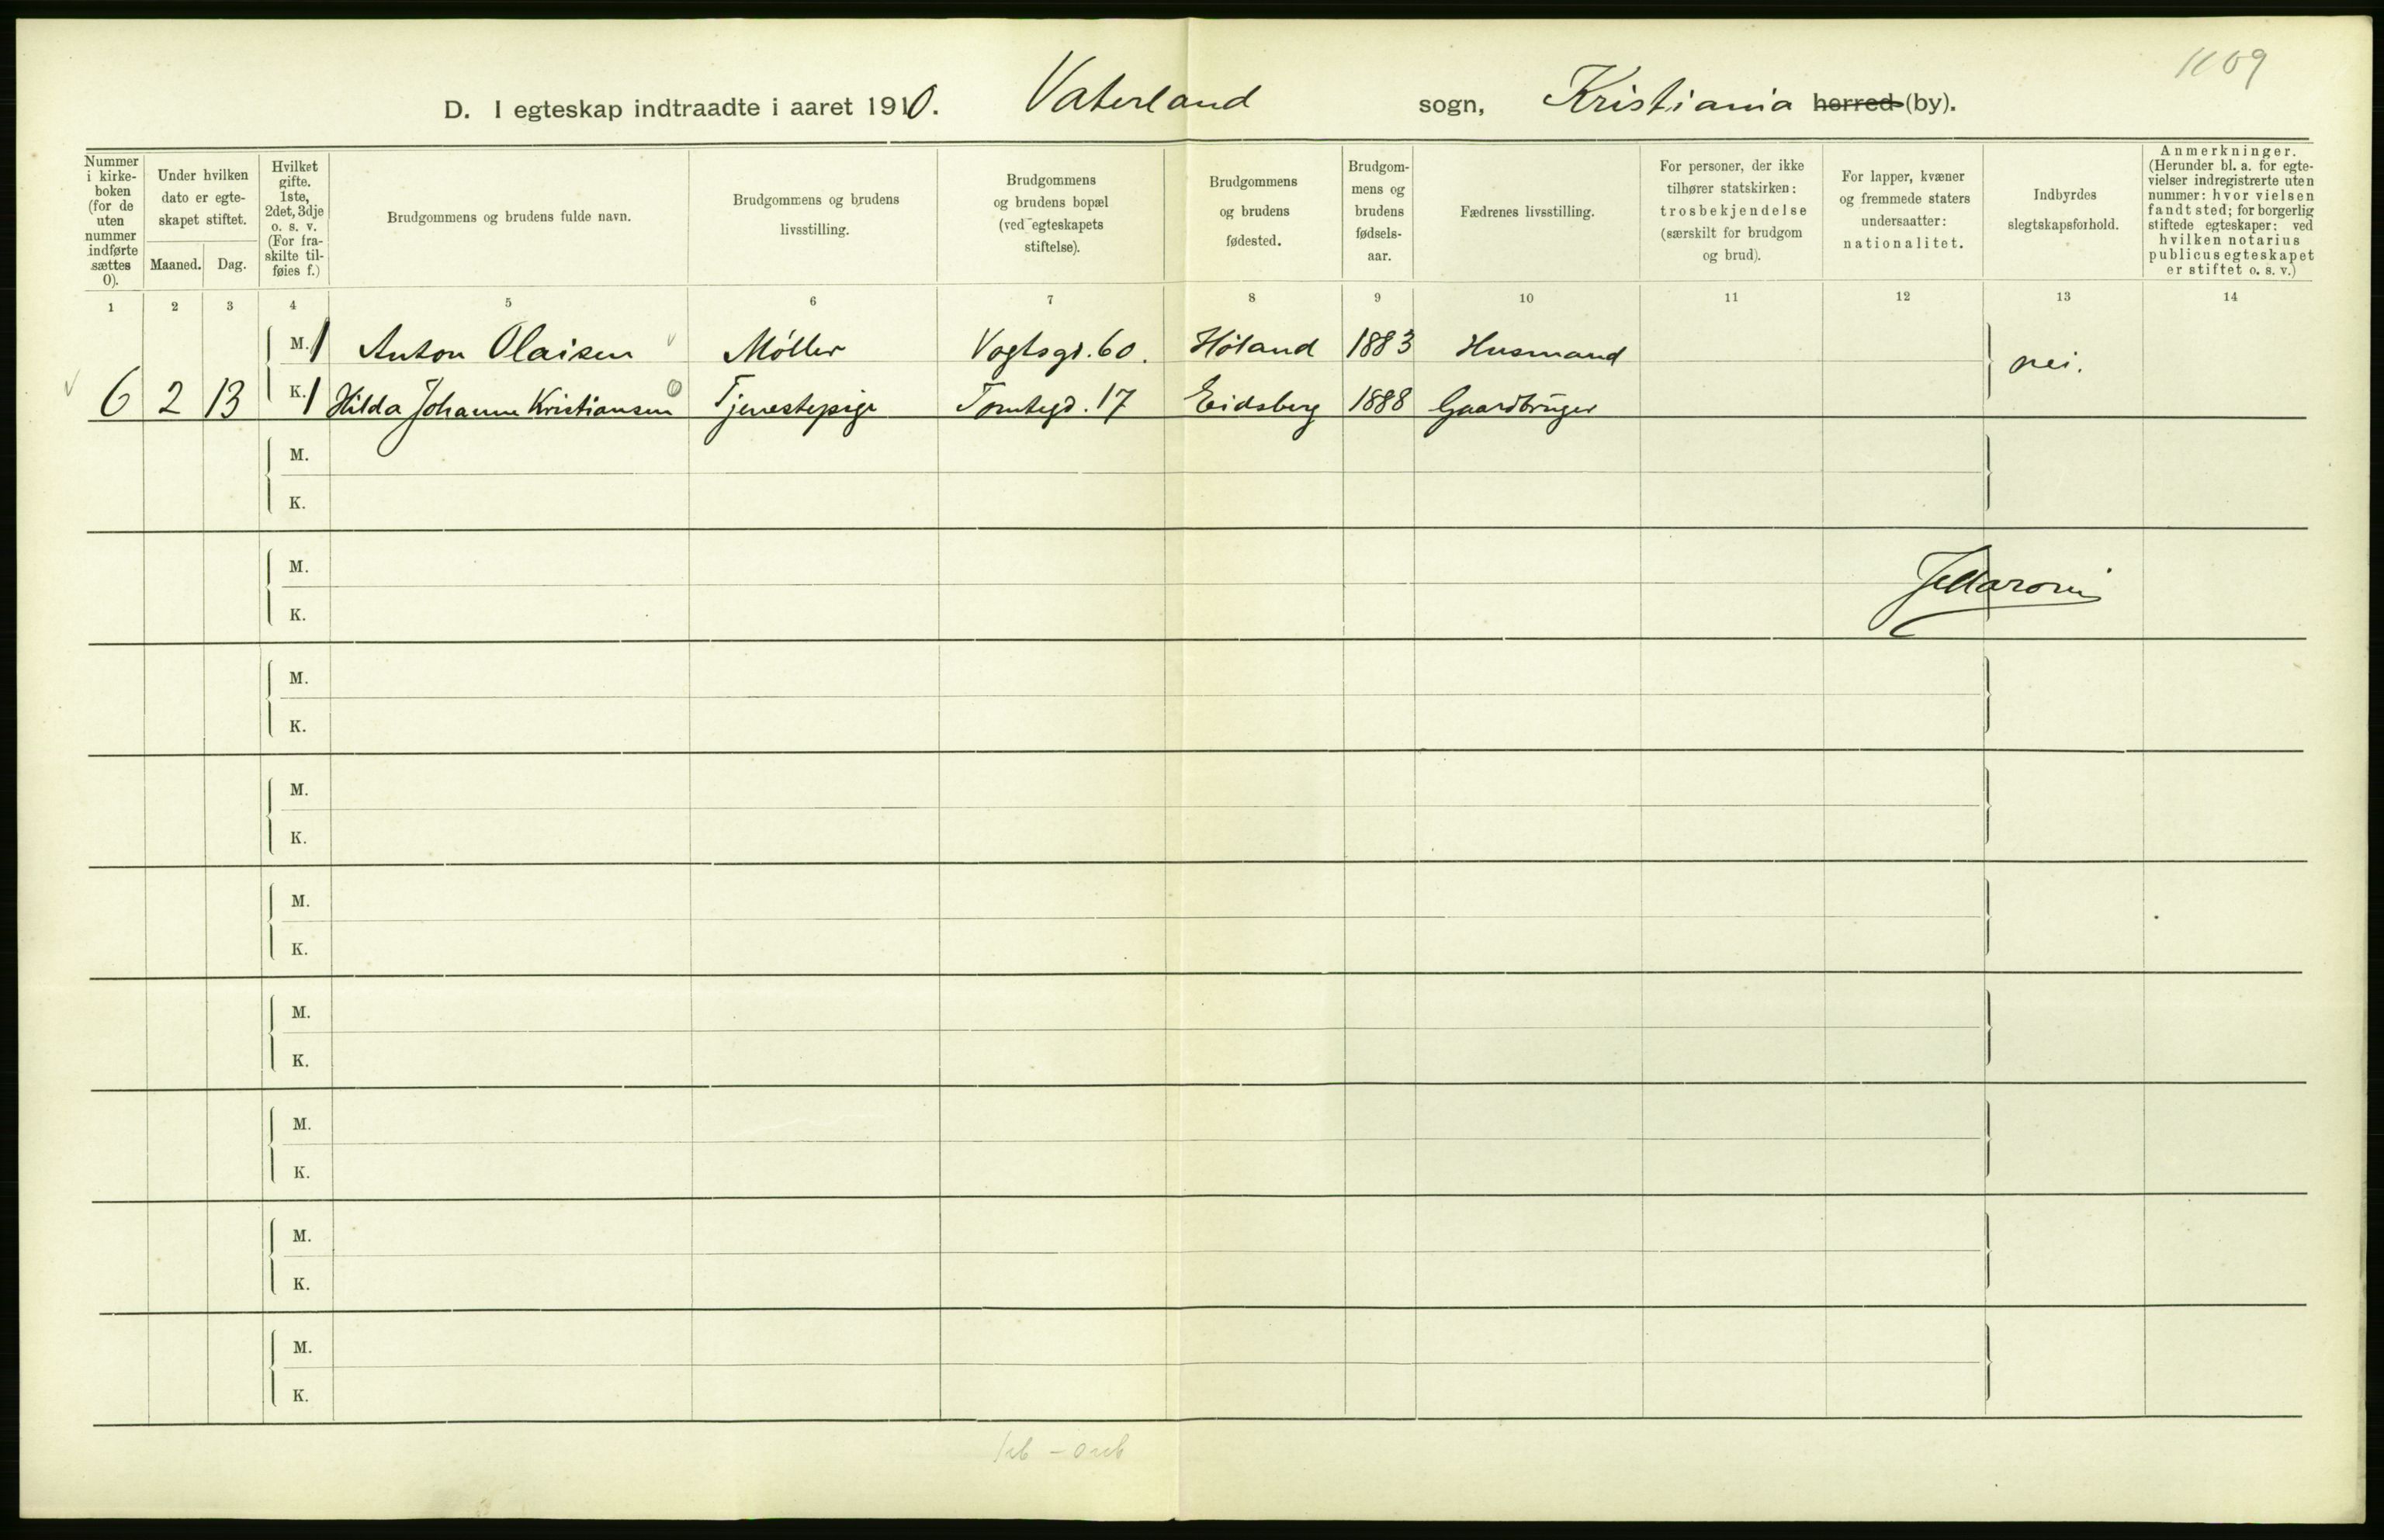 1109
D. I egteskap indtraadte i aaret 1910. Vaterland sogn, Kristiania herred (by).
Nummer i kirkeboken (for de uten nummer indførte sættes 0).
Under hvilken dato er egteskapet stiftet.
Maaned. Dag.
Hvilket gifte. 1ste, 2det, 3dje o. s. v. (For fraskilte tilføies f.)
Brudgommens og brudens fulde navn.
Brudgommens og brudens livsstilling.
Brudgommens og brudens bopæl (ved egteskapets stiftelse).
Brudgommens og brudens fødested.
Brudgommens og brudens fødselsaar.
Fædrenes livsstilling.
For personer, der ikke tilhører statskirken: trosbekjendelse (særskilt for brudgom og brud).
For lapper, kvæner og fremmede staters undersaatter: nationalitet.
Indbyrdes slegtskapsforhold.
Anmerkninger. (Herunder bl. a. for egtevielser indregistrerte uten nummer: hvor vielsen fandt sted; for borgerlig stiftede egteskaper: ved hvilken notarius publicus egteskapet er stiftet o. s. v.)
1 2 3 4 5 6 7 8 9 10 11 12 13 14
M. 1 Anton Olaisen Møller Vogtsgt. 60. Høland 1883 Husmand nei.
6 2 13 K. 1 Hilda Johanne Kristiansen Tjenestepige Tomtegd. 17 Eidsberg 1888 Gaardbruger
M.
K.
M.
K.
M.
K.
M.
K.
M.
K.
M.
K.
M.
K.
M.
K.
M.
K.